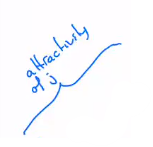 attractivity
of j